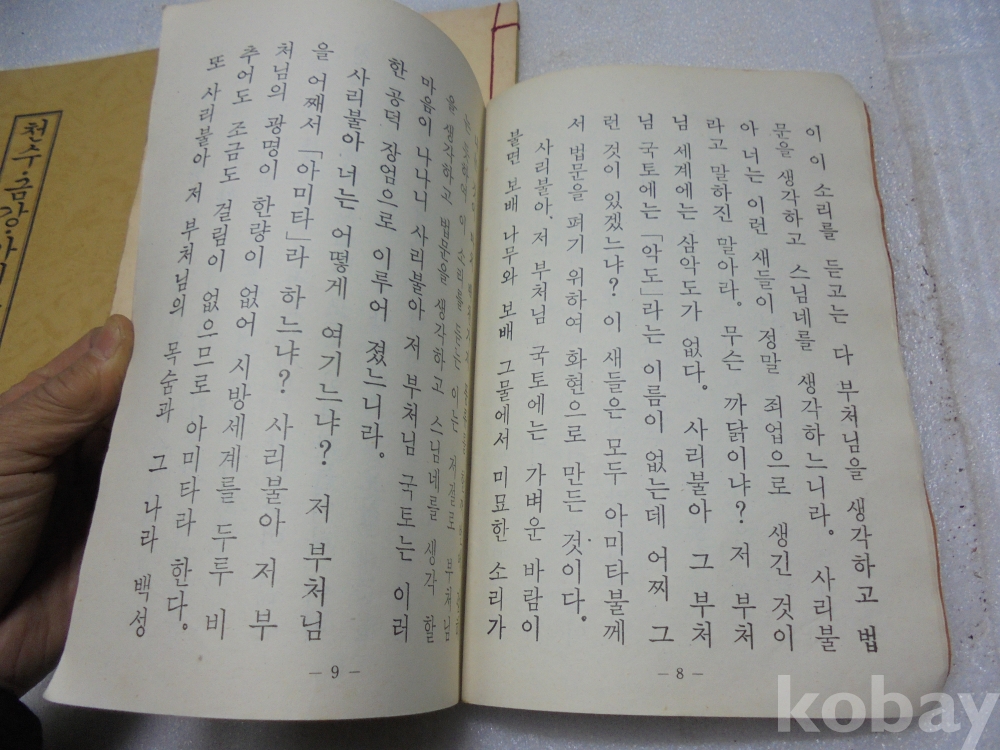 이 이 소리를 듣고는 다 부처님을 생각하고 법
문을 생각하고 스님네를 생각하느니라. 사리불
아 너는 이런 새들이 정말 죄업으로 생긴 것이
라고 말하진 말아라. 무슨 까닭이냐? 저 부처
님 세계에는 삼악도가 없다. 사리불아 그 부처
님 국토에는 「악도」라는 이름이 없는데 어찌 그
런 것이 있겠느냐? 이 새들은 모두 아미타불께
서 법문을 펴기 위하여 화현으로 만든 것이다.
사리불아. 저 부처님 국토에는 가벼운 바람이
불면 보배 나무와 보배 그물에서 미묘한 소리가
— 8 —
이 소리를 듣는 이는 저절로 부처님
을 생각하고 법문을 생각하고 스님네를 생각 할
마음이 나나니 사리불아 저 부처님 국토는 이러
한 공덕 장엄으로 이루어 졌느니라.
사리불아 너는 어떻게 여기느냐? 저 부처님
을 어째서 「아미타」라 하느냐? 사리불아 저 부
처님의 광명이 한량이 없어 시방세계를 두루 비
추어도 조금도 걸림이 없으므로 아미타라 한다.
또 사리불아 저 부처님의 목숨과 그 나라 백성
— 9 —
천수·금강·아
kobay